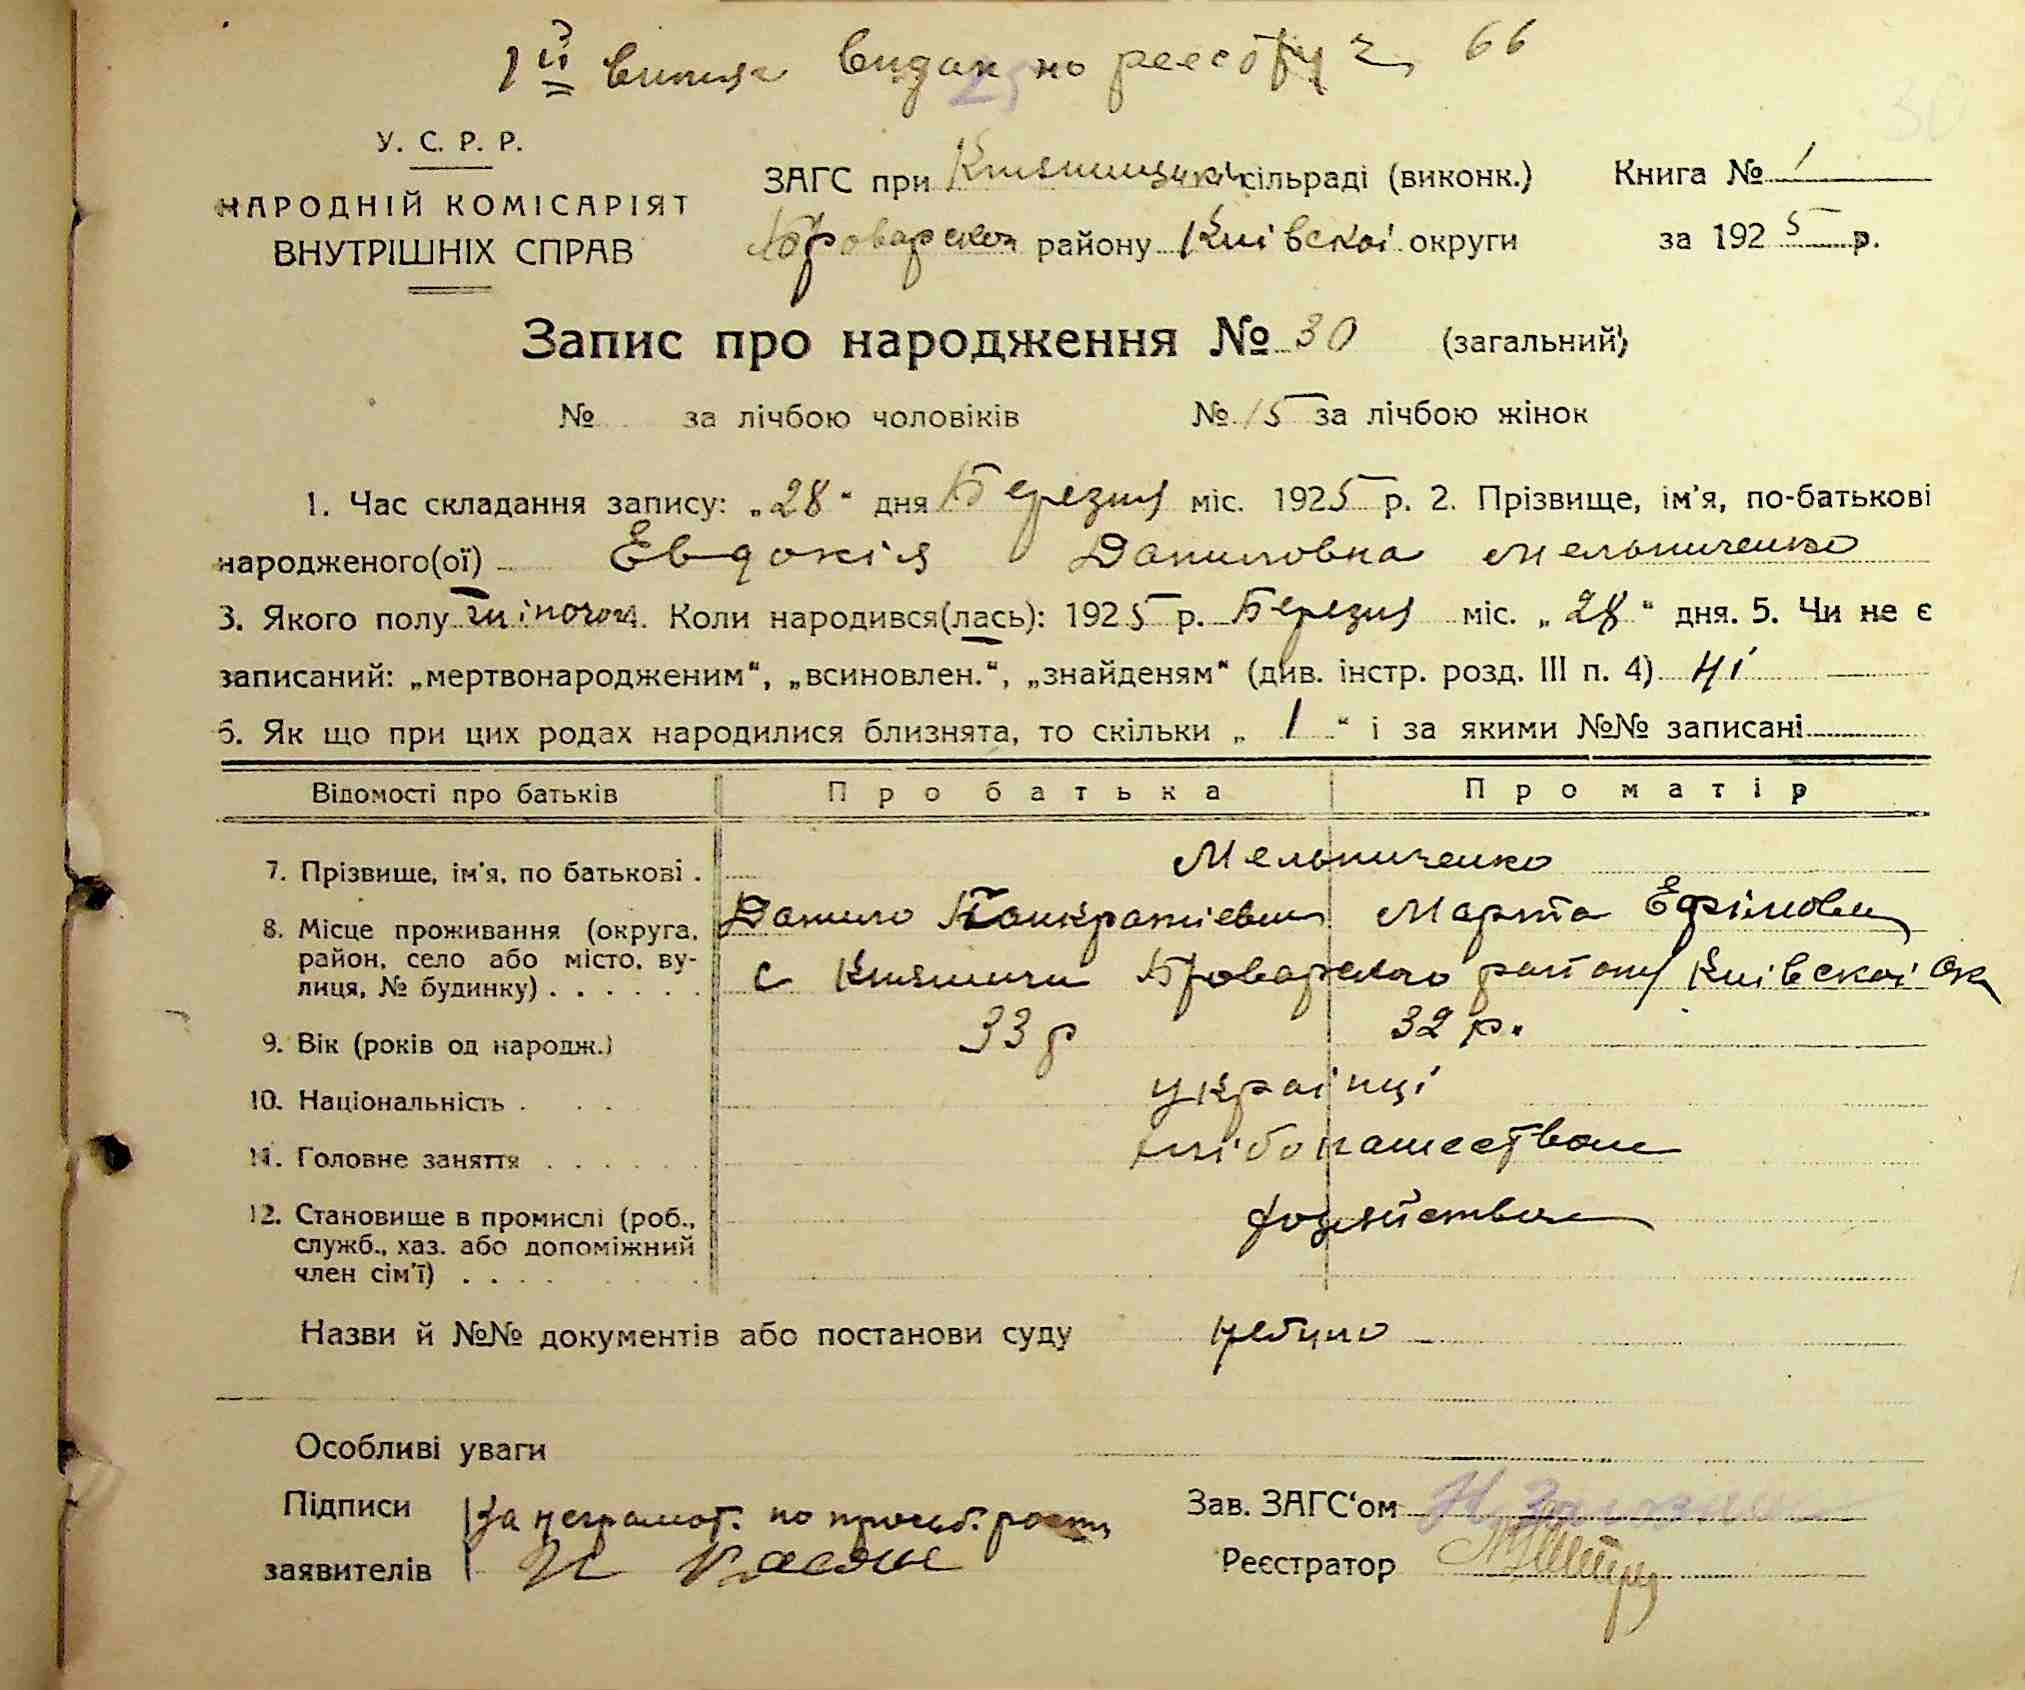 1й випис видан по реестру ч. 66
У. С. Р. Р.
НАРОДНІЙ КОМІСАРІЯТ
ВНУТРІШНІХ СПРАВ
ЗАГС при Княжицькій сільраді (виконк.)
Броварскоі району Киівскоі округи
Книга № 1
за 1925 р.
30
Запис про народження № 30 (загальний)
№ за лічбою чоловіків № 15 за лічбою жінок
1. Час складання запису: „28“ дня Березня міс. 1925 р. 2. Прізвище, ім'я, по-батькові
народженого(ої) Евдокія Даниловна Мельниченко
3. Якого полу жіночого. Коли народився(лась): 1925 р. Березня міс. „28“ дня. 5. Чи не є
записаний: „мертвонародженим“, „всиновлен.“, „знайденям“ (див. інстр. розд. III п. 4) Ні
6. Як що при цих родах народилися близнята, то скільки „ 1 “ і за якими №№ записані
Відомості про батьків Про батька Про матір
7. Прізвище, ім'я, по батькові . Мельниченко
Данило Панкратіевич Марта Ефімовна
8. Місце проживання (округа, район, село або місто, вулиця, № будинку) . . . . . . с Княжичи Броварского району Киівскоі Ок
9. Вік (років од народж.) 33 р 32 р.
10. Національність . . . украінці
11. Головне заняття . . . . . . хлібопашеством
12. Становище в промислі (роб., служб., хаз. або допоміжний член сім'ї) . . . . хозяйством
Назви й №№ документів або постанови суду небуло
Особливі уваги
Підписи За неграмот. по прозьб. росп
заявителів
Зав. ЗАГС‘ом
Реєстратор